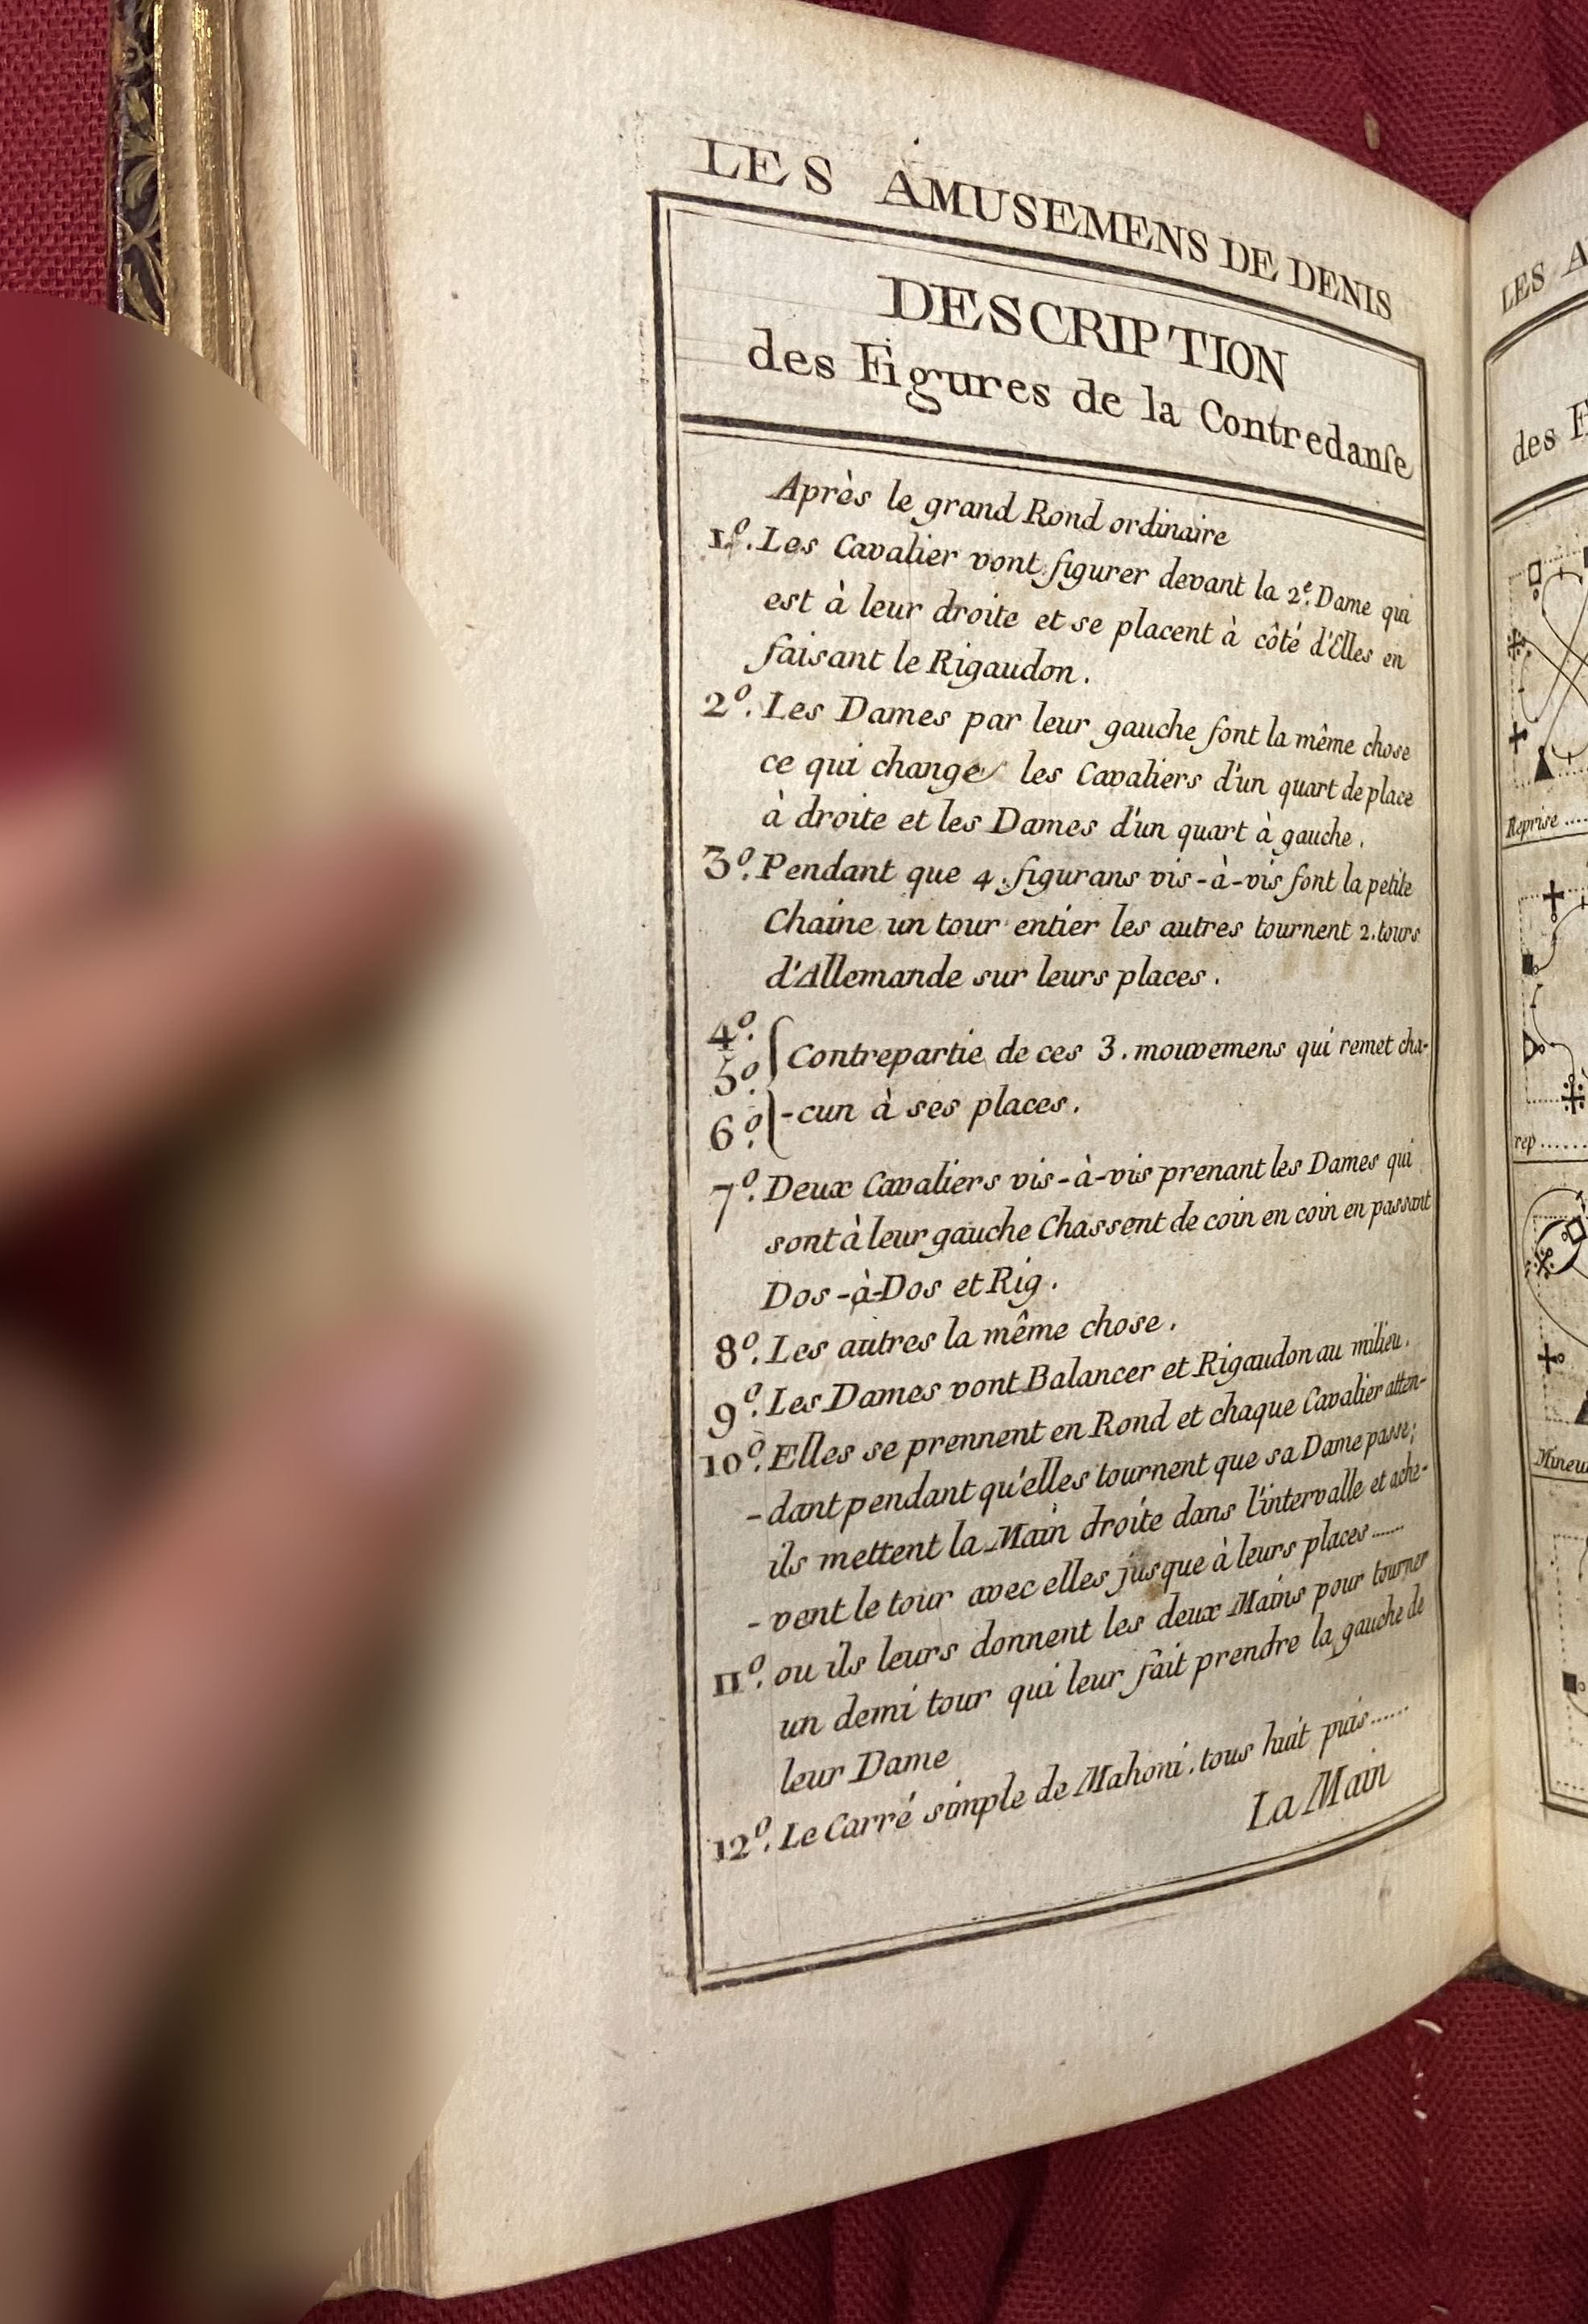 LES AMUSEMENS DE DENIS
DESCRIPTION
des Figures de la Contredanſe
Après le grand Rond ordinaire
1.º Les Cavalier vont figurer devant la 2.e Dame qui
est à leur droite et se placent à côté d'Elles en
faisant le Rigaudon.
2.º Les Dames par leur gauche font la même chose
ce qui change les Cavaliers d'un quart de place
à droite et les Dames d'un quart à gauche.
3.º Pendant que 4. figurans vis-à-vis font la petite
Chaine un tour entier les autres tournent 2. tours
d'Allemande sur leurs places.
4.º
5.º Contrepartie de ces 3. mouvemens qui remet cha-
6.º -cun à ses places.
7.º Deux Cavaliers vis-à-vis prenant les Dames qui
sont à leur gauche Chassent de coin en coin en passant
Dos-à-Dos et Rig.
8.º Les autres la même chose.
9.º Les Dames vont Balancer et Rigaudon au milieu.
10.º Elles se prennent en Rond et chaque Cavalier atten-
-dant pendant qu'elles tournent que sa Dame passe;
ils mettent la Main droite dans l'intervalle et ache-
-vent le tour avec elles jusque à leurs places......
11.º ou ils leurs donnent les deux Mains pour tourner
un demi tour qui leur fait prendre la gauche de
leur Dame
12.º Le Carré simple de Mahoni. tous huit puis......
La Main
LES A
des F
Reprise ....
rep......
Mineu